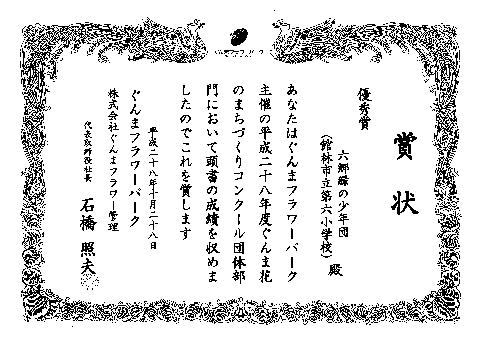 賞状
優秀賞
六郷緑の少年団
(館林市立第六小学校) 殿
あなたはぐんまフラワーパーク
主催の平成二十八年度ぐんま花
のまちづくりコンクール団体部
門において頭書の成績を収めま
したのでこれを賞します
平成二十八年十月二十八日
ぐんまフラワーパーク
株式会社ぐんまフラワー管理
代表取締役社長
石橋 照夫